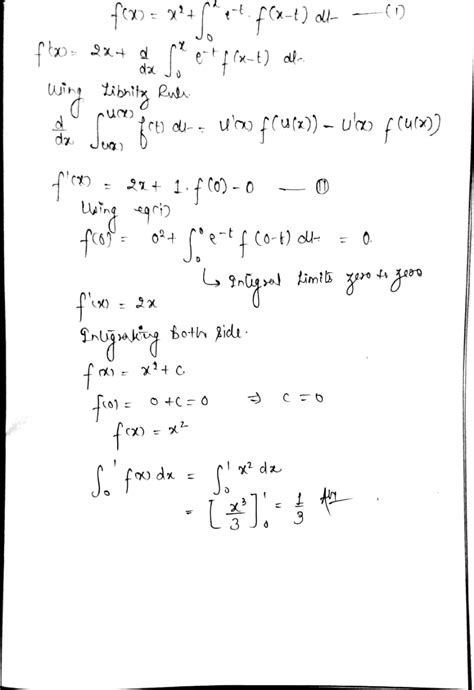 f(x) = x² + ∫₀ˣ e^-t · f(x-t) dt — (1)
f'(x) = 2x + d/dx ∫₀ˣ e^-t f(x-t) dt
Using Libnitz Rule
d/dx ∫ f(t) dt = U'(x) f(U(x)) - U'(x) f(U(x))
f'(x) = 2x + 1 · f(0) - 0 — (11)
Using eq(i)
f(0) = 0² + ∫₀⁰ e^-t f(0-t) dt = 0.
↳ Integral Limits zero to zero
f'(x) = 2x
Integrating Both Side.
f(x) = x² + c.
f(0) = 0 + c = 0 ⇒ c = 0
f(x) = x²
∫₀¹ f(x) dx = ∫₀¹ x² dx
= [x³/3]₀¹ = 1/3 Ans